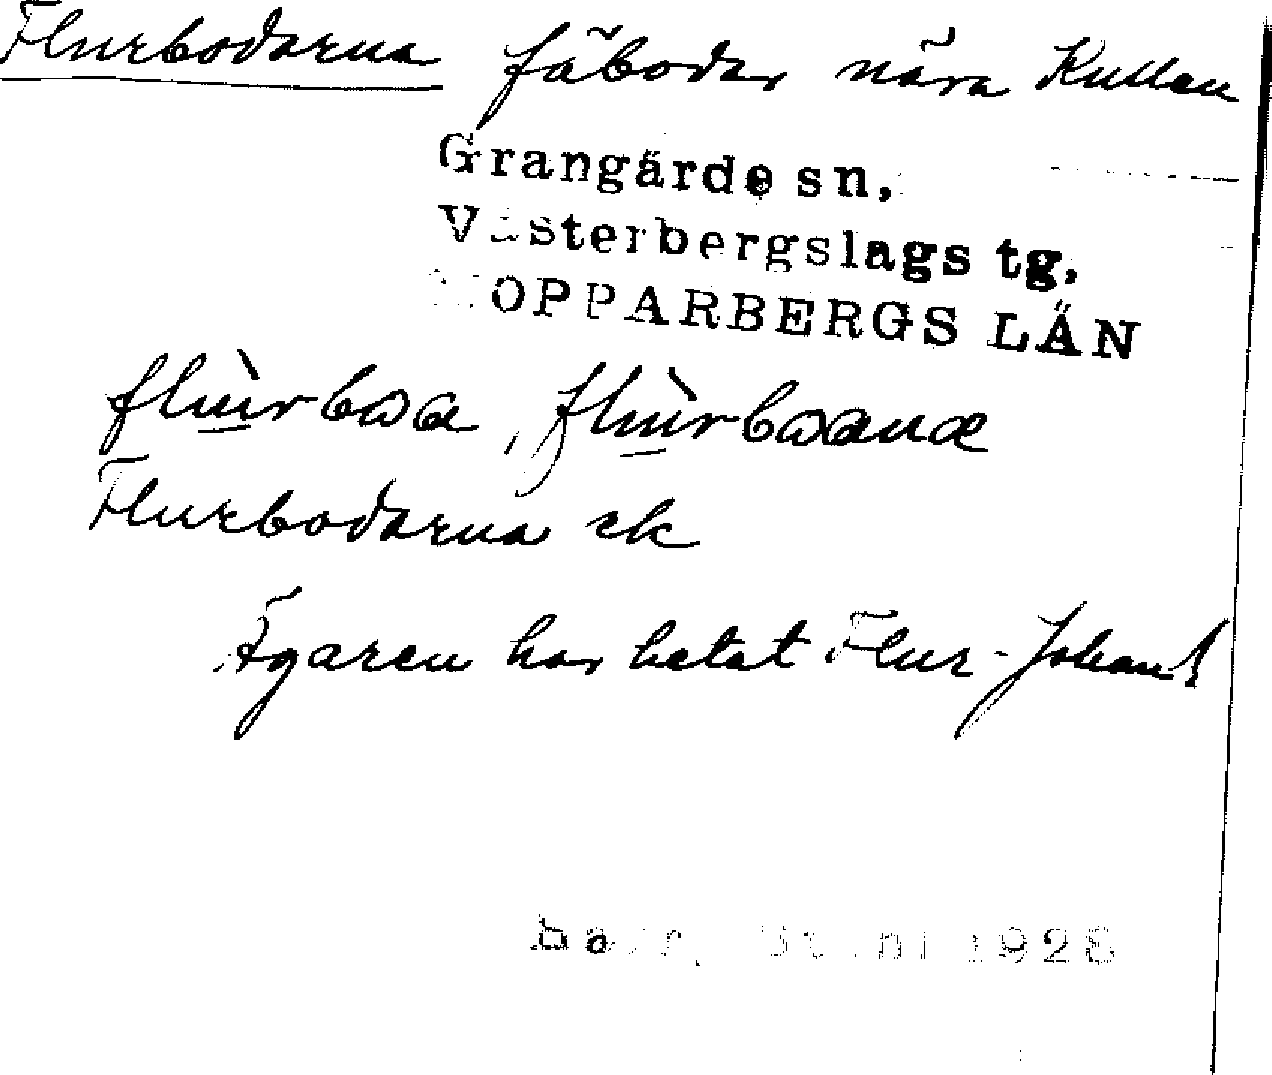 Flurbodarna fäbodar nära Kullen
Grangärde sn,
Västerbergslags tg,
KOPPARBERGS LÄN
flùrbωa, flùrbωana
Flurbodarna ek
Ägaren har hetat Flur-Johan!
1928